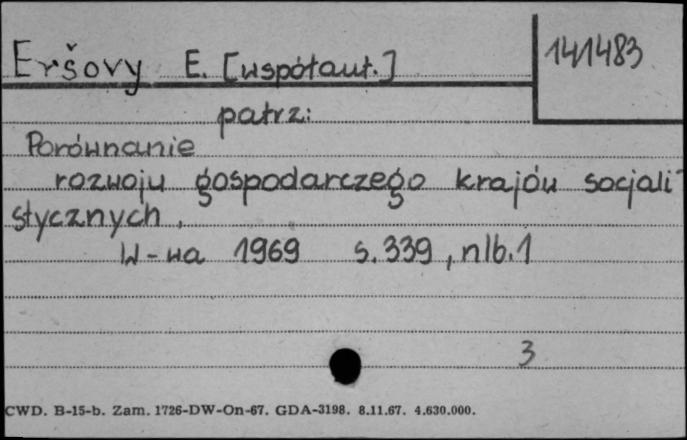 Eršovy E. [współaut.]
141483
patrz:
Porównanie
rozwoju gospodarczego krajów socjali-
stycznych.
W-wa 1969 s. 339, nlb. 1
3
CWD. B-15-b. Zam. 1726-DW-On-67. GDA-3198. 8.11.67. 4.630.000.